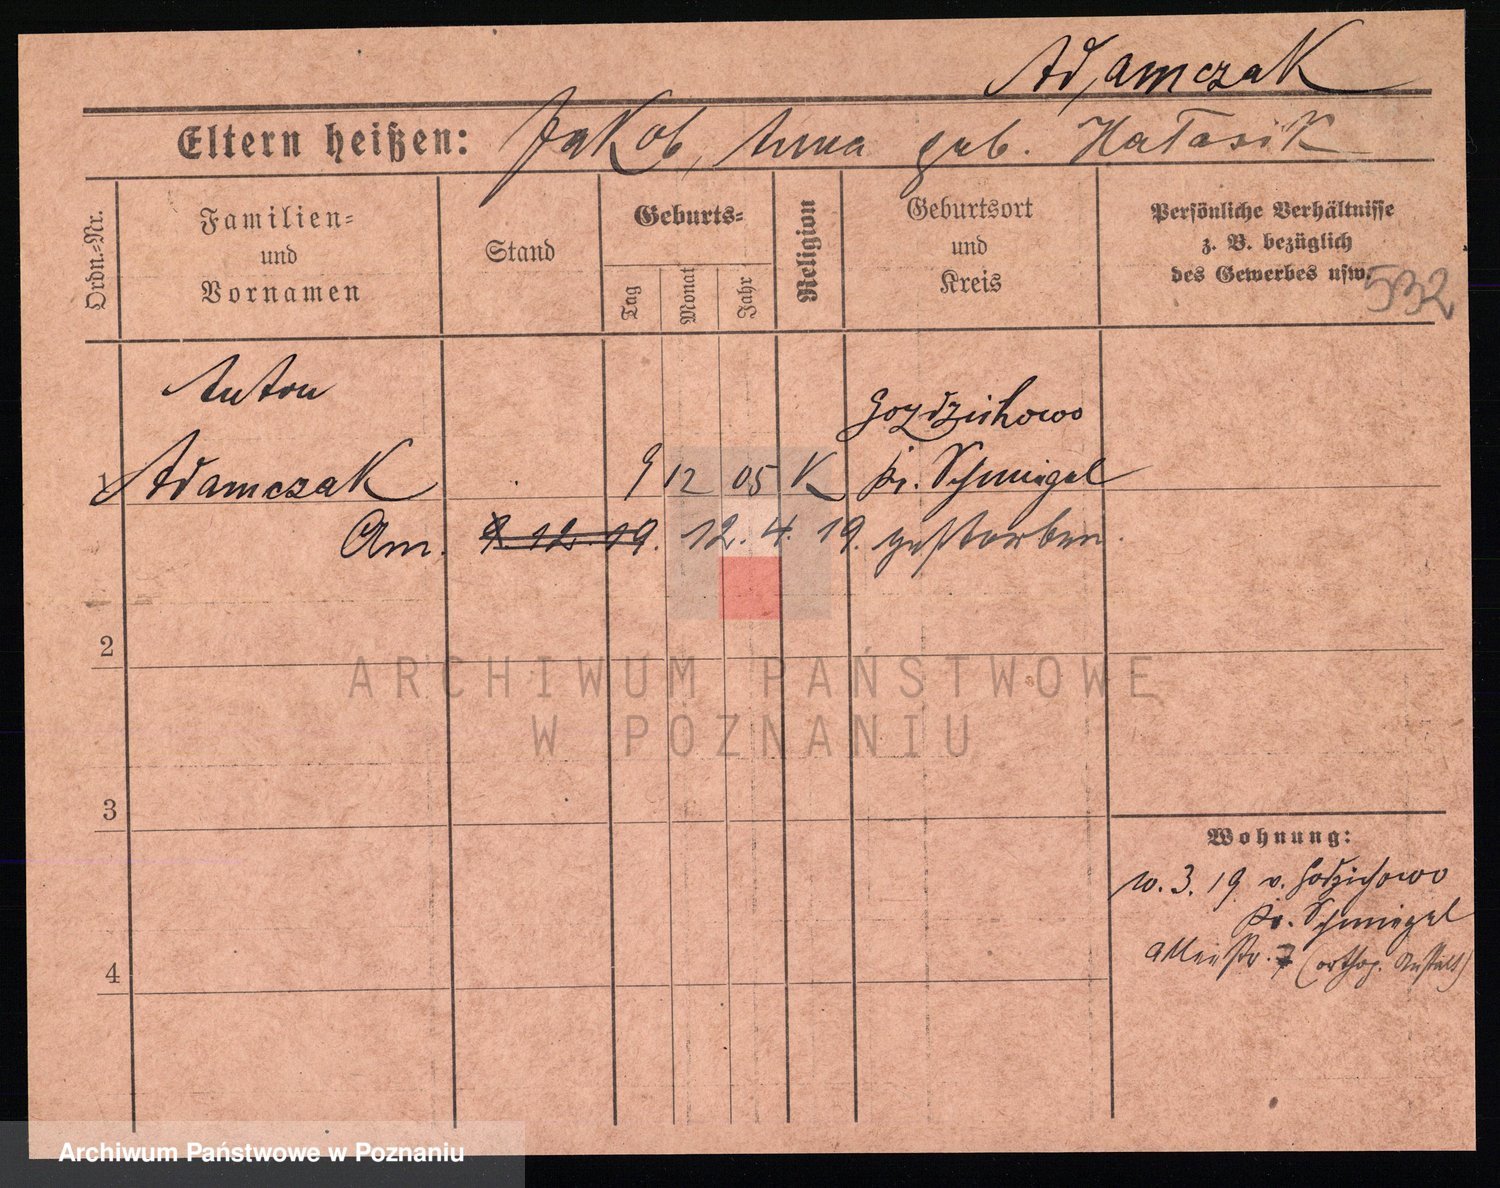 Adamczak
Eltern heißen: Jakob, Anna geb. Hałasik
Ordn.-Nr.
Familien-
und
Vornamen
Stand
Geburts-
Tag
Monat
Jahr
Religion
Geburtsort
und
Kreis
Persönliche Verhältnisse
z. B. bezüglich
des Gewerbes usw.
532
Anton
1 Adamczak 9 12 05 K
Gozdzichowo
Kr. Schmiegel
Am. 9. 12. 19. 12. 4. 19. gestorben.
2
3
4
Wohnung:
3. 19 v.
Kr. Schmiegel
7 (orthop. Anstalt)
ARCHIWUM PAŃSTWOWE
W POZNANIU
Archiwum Państwowe w Poznaniu